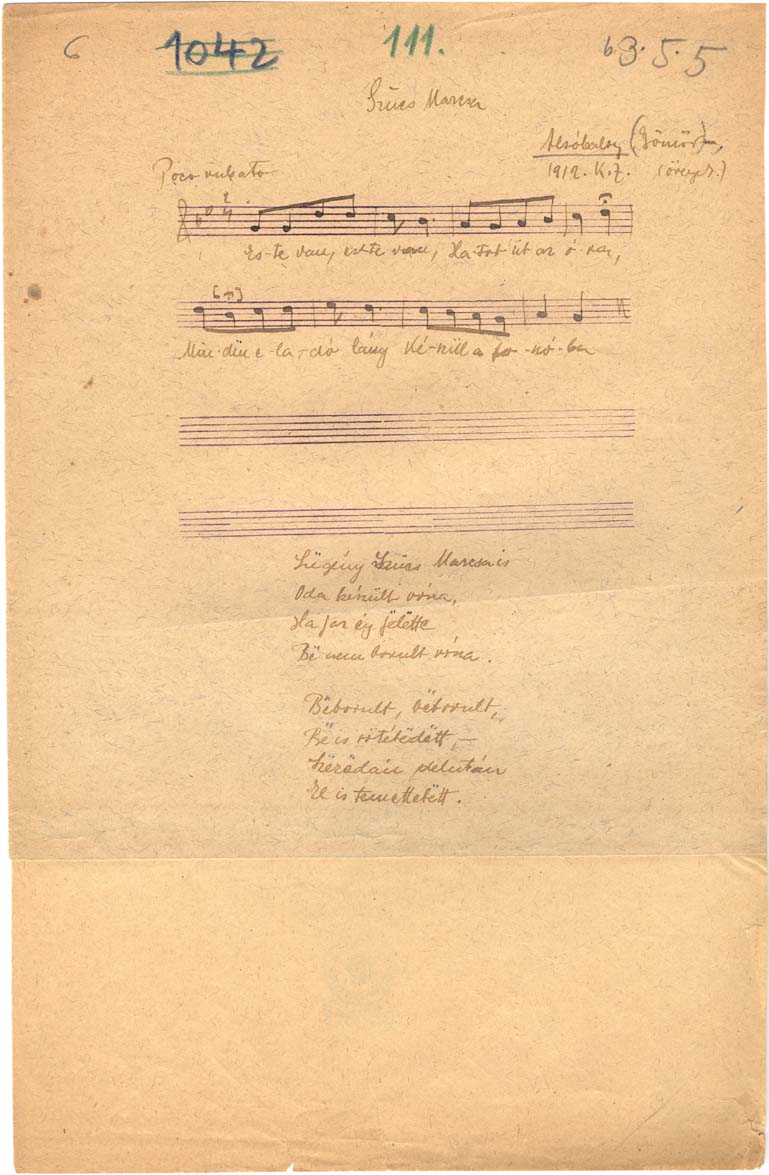 6 1042 111. b3. 5. 5
Szűcs Marcsa
Alsóbalog (Gömör),
Poco rubato 1912. K.Z. (öregek.)
2/4
Es-te van, es-te van, Ha-tot üt az ó-ra,
Min-dën e-la-dó lány Ké-szűl a fo-nó-ba
Szëgény Szűcs Marcsa is
Oda készűlt vóna,
Ha jaz ég fëlëtte
Bë nem borult vóna.
Bëborult, bëborult,
Bë is sötétëdëtt,—
Szërëdán delután
El is temettetëtt.